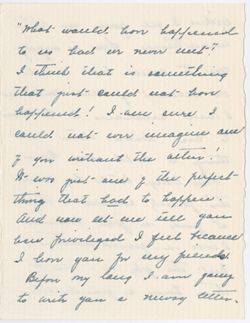 "What would have happened
to us had we never met"?
I think that is something
that just could not have
happened! I am sure I
could not ever imagine one
of you without the other!
It was just one of the perfect
thing that had to happen.
And now let me tell you
how privileged I feel because
I have you for my friends.
Before very long I am going
to write you a newsy letter.